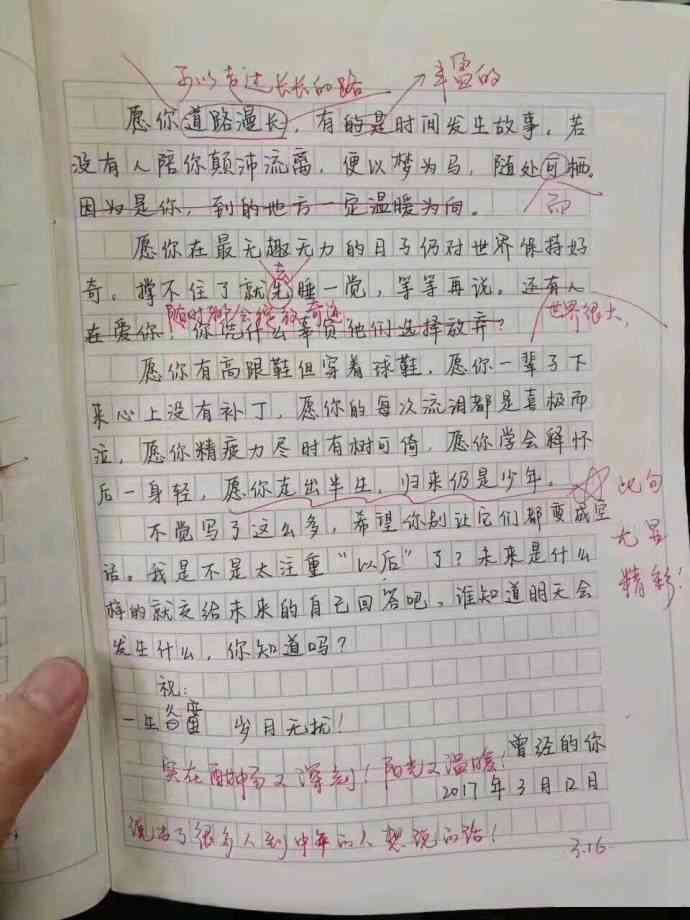 可以走过长长的路 丰富的
愿你道路漫长，有的是时间发生故事。若
没有人陪你颠沛流离，便以梦为马，随处可栖。
因为是你，到的地方一定温暖为向。 而
愿你在最无趣无力的日子仍对世界保持好
奇。撑不住了就先睡一觉，等等再说。还有人
去
世界很大，
随时都会绽放奇迹
在爱你，你凭什么辜负他们选择放弃？
愿你有高跟鞋但穿着球鞋，愿你一辈子下
来心上没有补丁，愿你的每次流泪都是喜极而
泣，愿你精疲力尽时有树可倚，愿你学会释怀
后一身轻，愿你走出半生，归来仍是少年。
此句
尤显
精彩！
不觉写了这么多，希望你别让它们都变成空
话。我是不是太注重“以后”了？未来是什么
样的就交给未来的自己回答吧，谁知道明天会
发生什么，你知道吗？
祝：
一生 岁月无扰！
曾经的你
实在 而又深刻！阳光又温暖！
2017年3月12日
说出了很多人到中年的人想说的话！
3.16